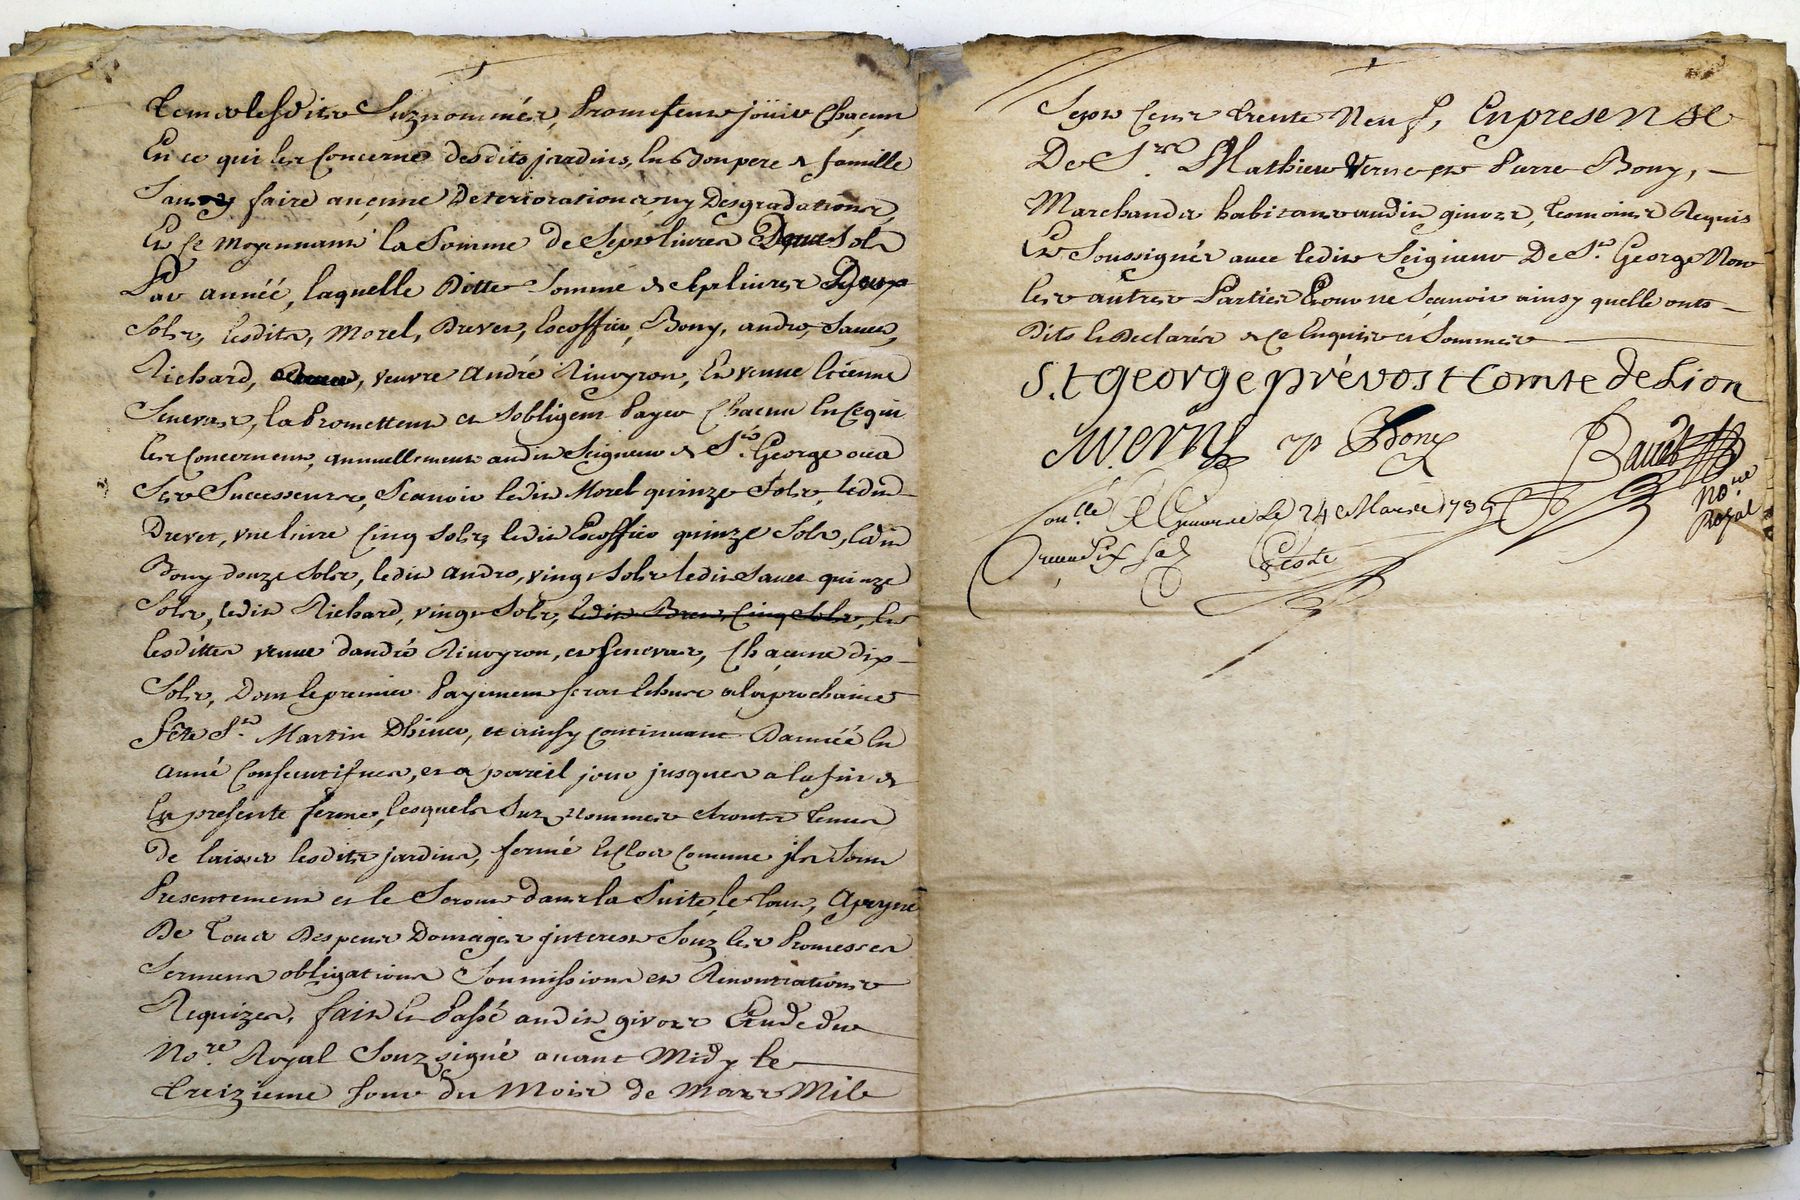 lesdits Suznommés, Promettent jouir Chacun
En ce qui les Concerne desdits jardins, En bon pere de famille
Sans faire aucune Deteriorations ny Desgradations,
Et Ce Moyennant la Somme de Sept livres Deux Sols
Par année, laquelle Ditte Somme de sept livres Deux
Sols, lesdits, Morel, Drevet, Escoffier, Bony, andro, Sauet,
Richard, veuve André Rivoyron, Et veuve Etienne
Senevas, la Promettent et Sobligent Payer Chacun En Ce qui
les Concernent, annuellement audit Seigneur de St. George ou a
Ses Successeurs, Scauoir ledit Morel quinze Sols, ledit
Drevet, vne livre Cinq Sols, ledit Escoffier quinze Sols, ledit
Bony douze Sols, ledit andro, vingt Sols ledit Sauet quinze
Sols, ledit Richard, vingt Sols, ledit Cinq Sols, Et
lesdittes veuve dandré Rivoyron, et Senevas, Chacune dix
Sols, Dont le premier Payement serat Eschus a la prochaine
feste St. Martin Dhiver, et ainsy Continuant Dannée En
année Consecutifues, et a pareil jour jusques a la fin de
la presente ferme, lesquels Suz nommés seronts Tenus
de laisser lesdits jardins, fermé Et Clos Comme jls Sont
Presentement et le Seront dans la Suite, le tout, a peyne
De Tous Despens Domages jnterests Souz les Promesses
Sermens obligations Soumissions et Renontiations
Requizes, fait Et Passé audit givors Etude du
No.re Royal Souzsigné avant Midy le
treizieme Jour du Mois de Mars Mil
Sept Cent trente Neuf, En presense
De Sr. Mathieu Verne et Pierre Bony,
Marchands habitans audit givors, temoins Requis
Et Soussignés avec ledit Seigneur De St. George Non
les autres Parties Pour ne Scauoir ainsy quelle onts
Dits Et Declarés de Ce Enquis et Sommés
S.t george prévost Comte de Lion
M. verne p Bony
No.re
Royal
Conllé A Givors Le 24 Mars 1739
Receu Six sols